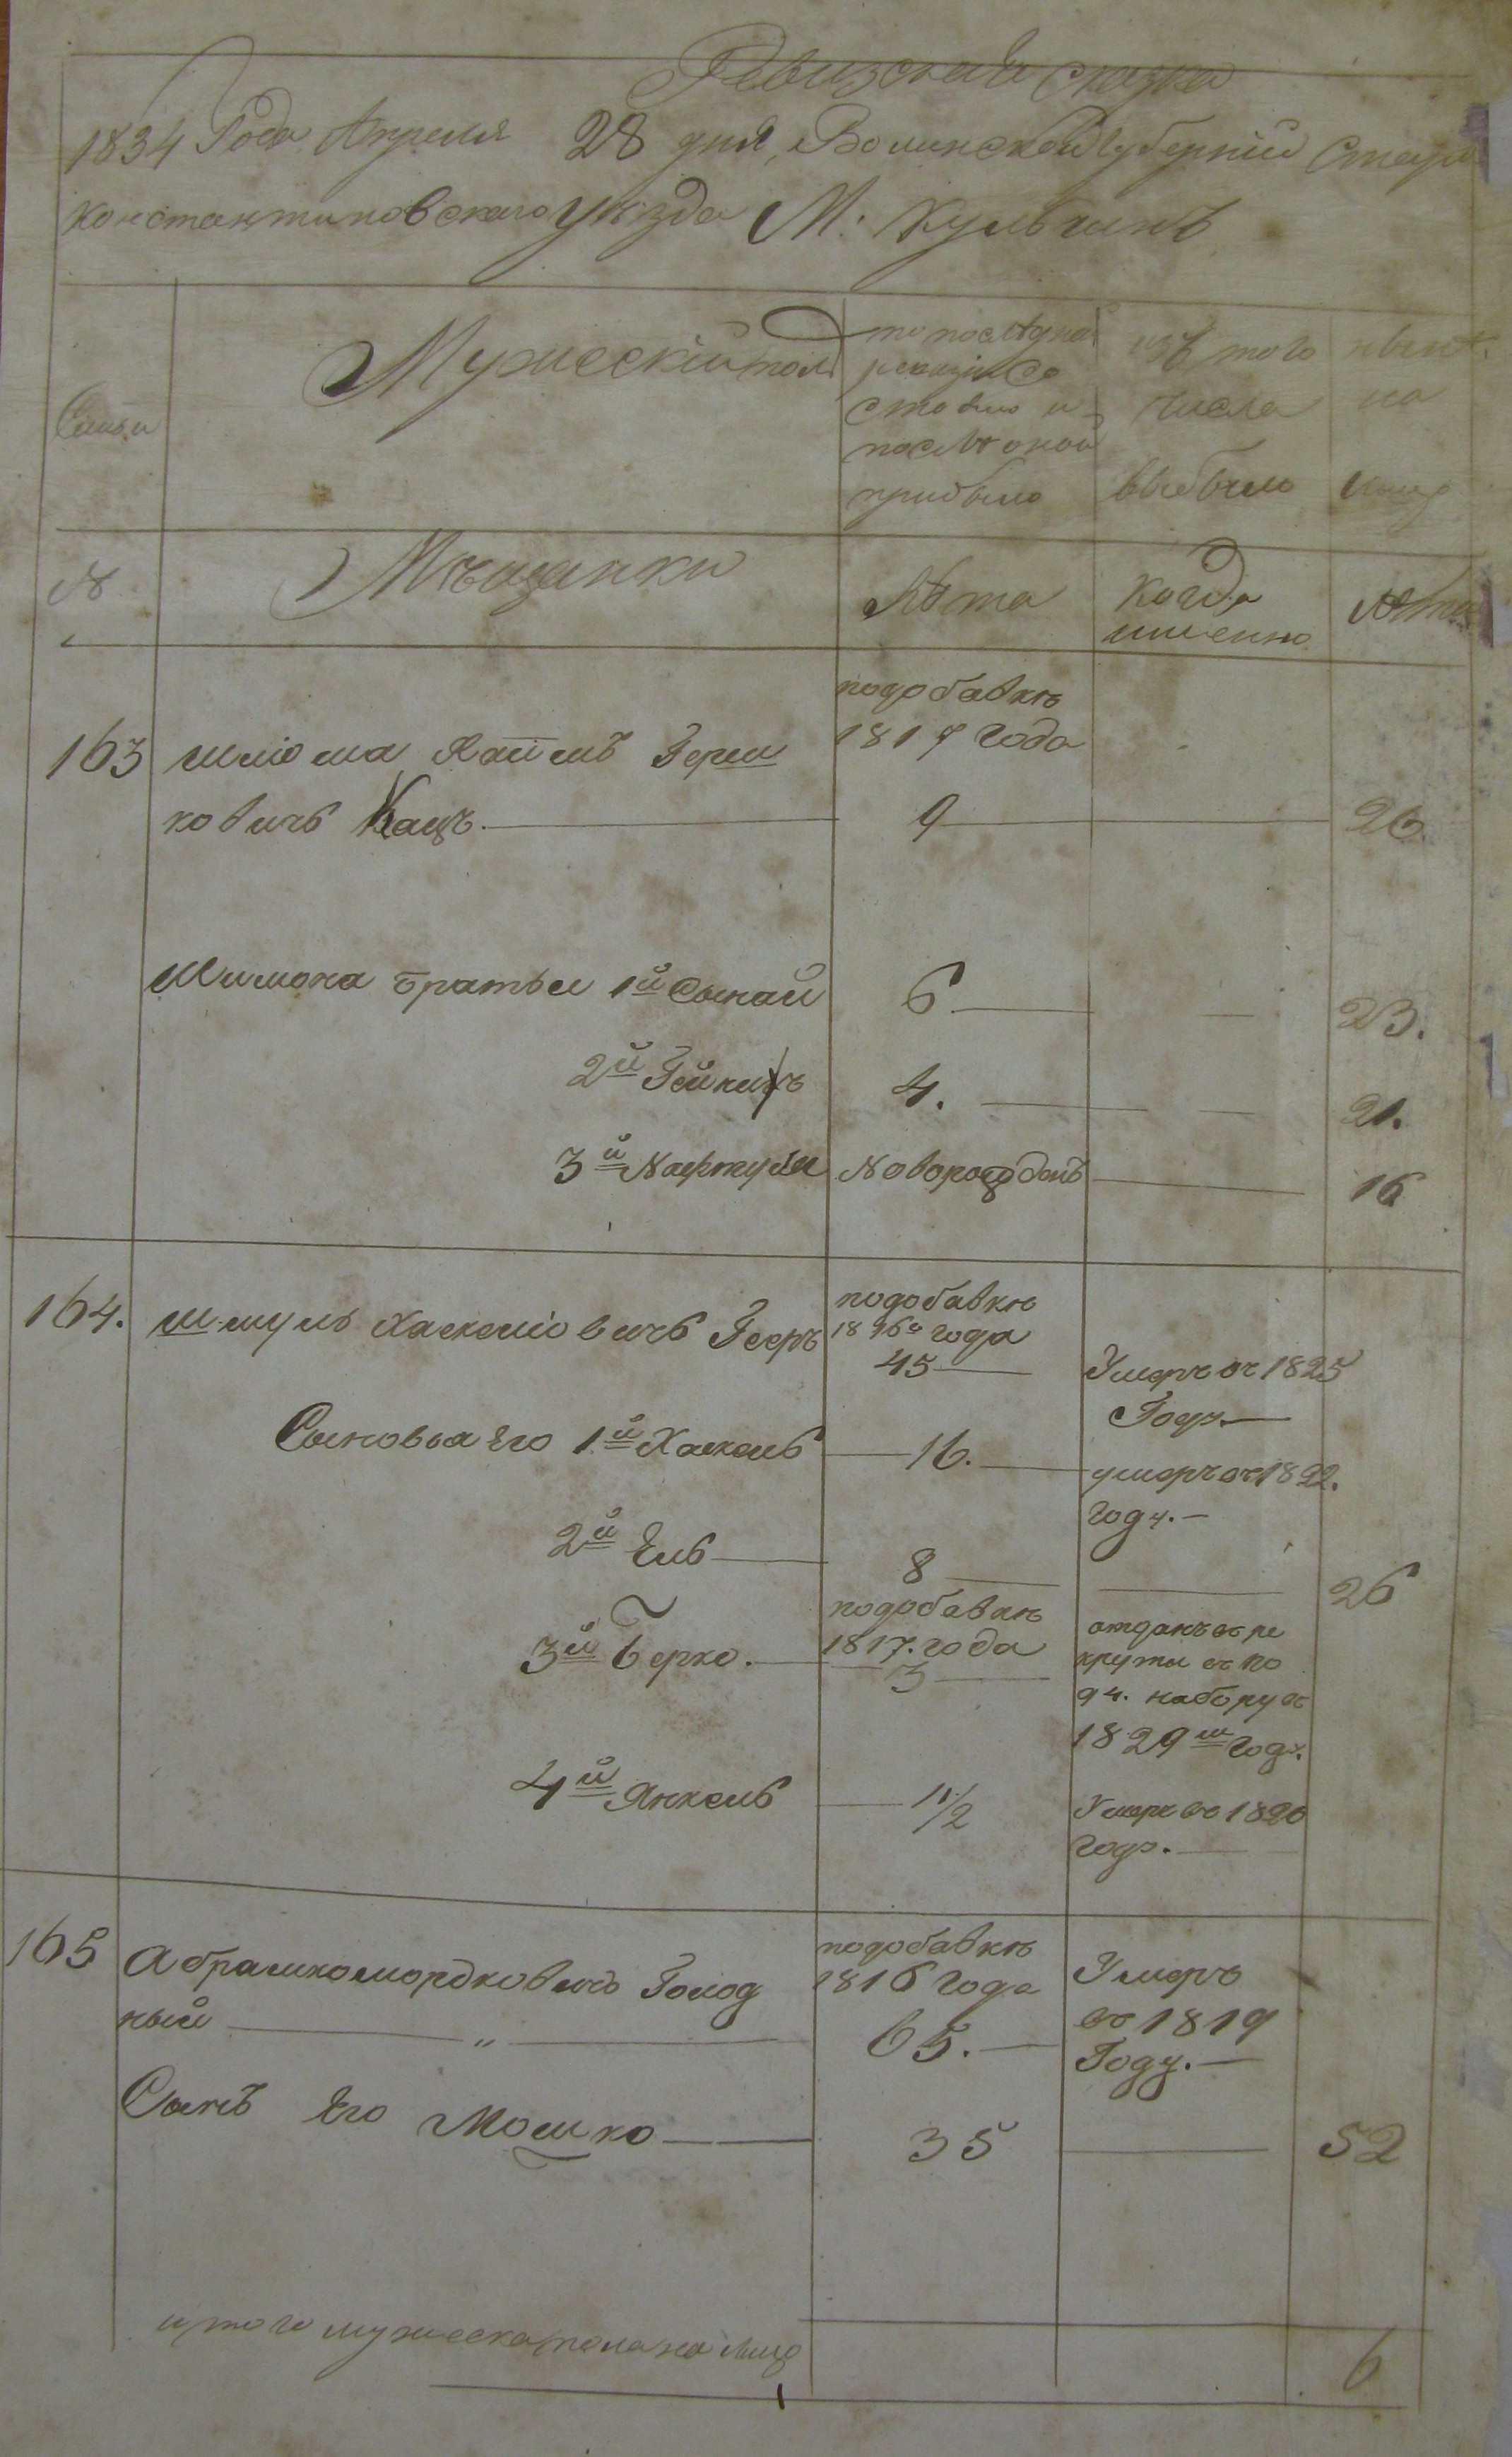 Ревизская сказка
1834 Года Апреля 28 дня, Волинской Губернии Старо
константиновского уезда М: Кульчинъ
Семьи
Мужескій полъ
по последней
ревизіи со
стояло и
после оной
прибыло
изъ того
числа
выбыло
ныне
на
лицо
№
Мещанки
Лета
когда
именно
Лета
подобавке
1817 года
163 Шліома Хаимъ Герш
ковичъ Кацъ. 9 26.
Шлиома братьи 1й Сынай 6 23.
2й Гейнихъ 4. 21.
3й Нафтула Новорождень 16
164. Шмуль Хаскеліовичъ Гееръ
подобавке
1816го года
45
Умеръ въ 1825
Году.
Сыновья Его 1й Хаскель 16.
умеръ въ 1822.
году.
2й Ель 8 26
3й Берко.
подобавке
1817. года
3
отданъ въ ре
круты въ по
94. наборузъ
1829м году.
4й Янкель 1 1/2
Умеръ въ 1820
году.
165 Абрамко Мордковичъ Голод
ный "
подобавке
1816 Года
65.
Умеръ
въ 1819
Году.
Сынъ Его Мошко 35 52
итого мужеска пола на лицо 6